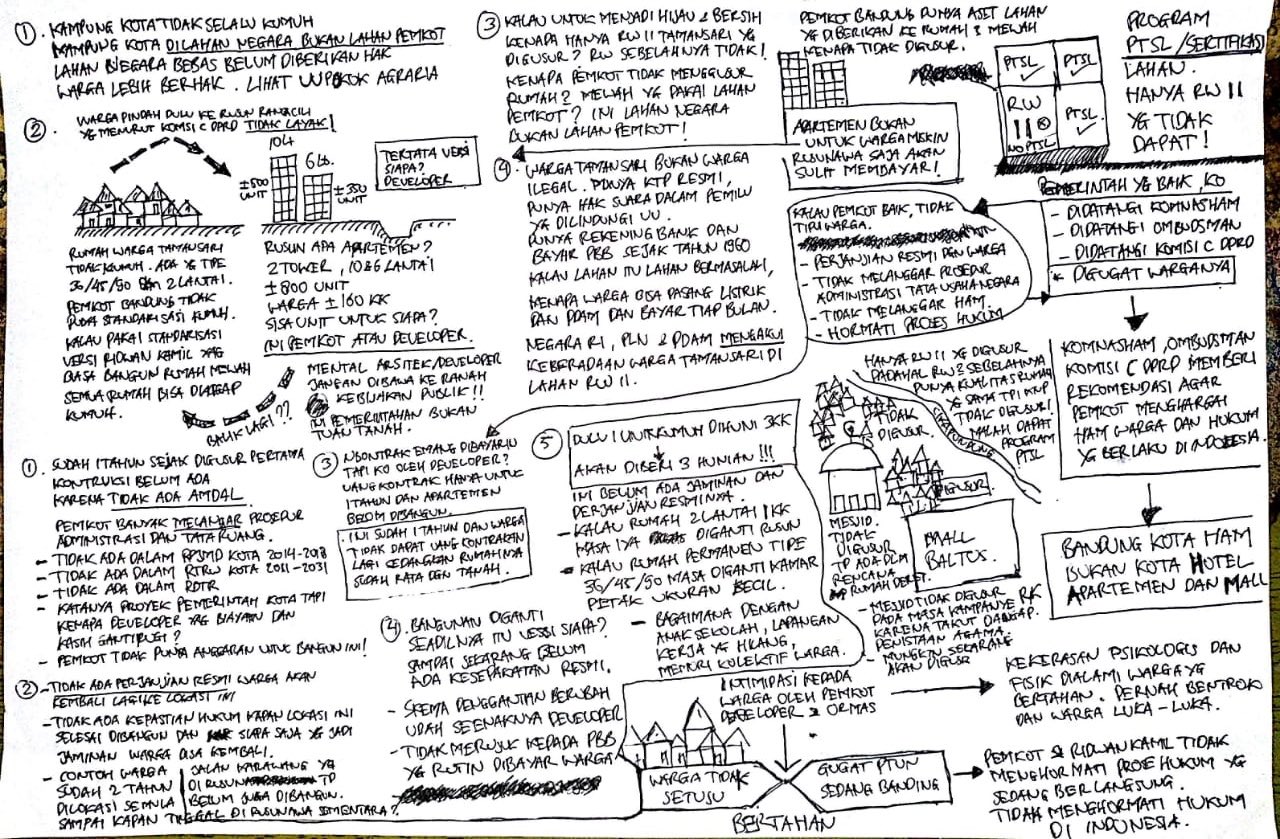 ①. KAMPUNG KOTA TIDAK SELALU KUMUH
KAMPUNG KOTA DILAHAN NEGARA BUKAN LAHAN PEMKOT
LAHAN NEGARA BEBAS BELUM DIBERIKAN HAK
WARGA LEBIH BERHAK. LIHAT UU POKOK AGRARIA
②. WARGA PINDAH DULU KE RUSUN RANCACILI
YG MENURUT KOMISI C DPRD TIDAK LAYAK!
10Lt
6 Lt.
±500
UNIT
±350
UNIT
TERTATA VERSI
SIAPA?
DEVELOPER
RUMAH WARGA TAMANSARI
TIDAK KUMUH. ADA YG TIPE
36/45/90 DAN 2 LANTAI.
PEMKOT BANDUNG TIDAK
PUNYA STANDARISASI KUMUH.
KALAU PAKAI STANDARISASI
VERSI RIDWAN KAMIL YAG
BIASA BANGUN RUMAH MEWAH
SEMUA RUMAH BISA DIANGGAP
KUMUH.
RUSUN APA APARTEMEN?
2 TOWER, 10 & 6 LANTAI
±800 UNIT
WARGA ±160 KK
SISA UNIT UNTUK SIAPA?
INI PEMKOT ATAU DEVELOPER.
MENTAL ARSITEK/DEVELOPER
JANGAN DIBAWA KE RANAH
KEBIJAKAN PUBLIK!!
INI PEMERINTAHAN BUKAN
TUAN TANAH.
BALIK LAGI??
③ KALAU UNTUK MENJADI HIJAU & BERSIH
KENAPA HANYA RW 11 TAMANSARI YG
DIGUSUR? RW SEBELAHNYA TIDAK!
KENAPA PEMKOT TIDAK MENGGUSUR
RUMAH2 MEWAH YG PAKAI LAHAN
PEMKOT? INI LAHAN NEGARA
BUKAN LAHAN PEMKOT!
④. WARGA TAMANSARI BUKAN WARGA
ILEGAL. PUNYA KTP RESMI,
PUNYA HAK SUARA DALAM PEMILU
YG DILINDUNGI UU.
PUNYA REKENING BANK DAN
BAYAR PBB SEJAK TAHUN 1960
KALAU LAHAN ITU LAHAN BERMASALAH,
KENAPA WARGA BISA PASANG LISTRIK
DAN PDAM DAN BAYAR TIAP BULAN.
NEGARA RI, PLN & PDAM MENGAKUI
KEBERADAAN WARGA TAMANSARI DI
LAHAN RW 11.
PEMKOT BANDUNG PUNYA ASET LAHAN
YG DIBERIKAN KE RUMAH2 MEWAH
KENAPA TIDAK DIGUSUR.
APARTEMEN BUKAN
UNTUK WARGA MISKIN
RUSUNAWA SAJA AKAN
SULIT MEMBAYAR!
PTSL
PTSL
RW
11
NO PTSL
PTSL
PROGRAM
PTSL/SERTIFIKASI
LAHAN.
HANYA RW 11
YG TIDAK
DAPAT!
KALAU PEMKOT BAIK, TIDAK
TIPU WARGA.
- PERJANJIAN RESMI DGN WARGA
- TIDAK MELANGGAR PROSEDUR
ADMINISTRASI TATA USAHA NEGARA
- TIDAK MELANGGAR HAM.
- HORMATI PROSES HUKUM
PEMERINTAH YG BAIK, KO
- DIDATANGI KOMNASHAM
- DIDATANGI OMBUDSMAN
- DIDATANGI KOMISI C DPRD
* DIGUGAT WARGANYA
KOMNASHAM, OMBUDSMAN
KOMISI C DPRD MEMBERI
REKOMENDASI AGAR
PEMKOT MENGHARGAI
HAM WARGA DAN HUKUM
YG BERLAKU DI INDONESIA.
BANDUNG KOTA HAM
BUKAN KOTA HOTEL
APARTEMEN DAN MALL
HANYA RW 11 YG DIGUSUR
PADAHAL RW2 SEBELAHNYA
PUNYA KUALITAS RUMAH
YG SAMA TPI KNP
TIDAK DIGUSUR!
MALAH DAPAT
PROGRAM
PTSL
CIKAPUNDUNG
TIDAK
DIGUSUR.
DIGUSUR
MESJID.
TIDAK
DIGUSUR
TP ADA DLM
RENCANA
RUMAH DERET.
MALL
BALTOS.
- MESJID TIDAK DIGUSUR
PADA MASA KAMPANYE RK
KARENA TAKUT DIANGGAP
PENISTAAN AGAMA.
MUNGKIN SEKARANG
AKAN DIGUSUR
①. SUDAH 1 TAHUN SEJAK DIGUSUR PERTAMA
KONTRUKSI BELUM ADA
KARENA TIDAK ADA AMDAL.
PEMKOT BANYAK MELANGAR PROSEDUR
ADMINISTRASI DAN TATA RUANG.
- TIDAK ADA DALAM RPJMD KOTA 2014-2018
- TIDAK ADA DALAM RTRW KOTA 2011-2031
- TIDAK ADA DALAM RDTR
- KATANYA PROYEK PEMERINTAH KOTA TAPI
KENAPA DEVELOPER YAG BIAYAIN DAN
KASIH GANTIRUGI?
- PEMKOT TIDAK PUNYA ANGGARAN UNTUK BANGUN INI!
②-TIDAK ADA PERJANJIAN RESMI WARGA AKAN
KEMBALI LAGI KE LOKASI INI
- TIDAK ADA KEPASTIAN HUKUM KAPAN LOKASI INI
SELESAI DIBANGUN DAN SIAPA SAJA YG JADI
JAMINAN WARGA BISA KEMBALI.
- CONTOH WARGA JALAN KARAWANG YG
SUDAH 2 TAHUN DI RUSUN TP
DILOKASI SEMULA BELUM JUGA DIBANGUN.
SAMPAI KAPAN TINGGAL DI RUSUNAWA SEMENTARA?
③ NGONTRAK EMANG DIBAYARIN
TAPI KO OLEH DEVELOPER?
UANG KONTRAK HANYA UNTUK
1 TAHUN DAN APARTEMEN
BELUM DIBANGUN.
. INI SUDAH 1 TAHUN DAN WARGA
TIDAK DAPAT UANG KONTRAKAN
LAGI SEDANGKAN RUMAHNYA
SUDAH RATA DGN TANAH.
④. BANGUNAN DIGANTI
SEADILNYA ITU VERSI SIAPA?
SAMPAI SEKARANG BELUM
ADA KESEPAKATAN RESMI.
- SKEMA PENGGANTIAN BERUBAH
UBAH SEENAKNYA DEVELOPER
- TIDAK MERUJUK KEPADA PBB
YG RUTIN DIBAYAR WARGA
⑤ DULU 1 UNIT KUMUH DIHUNI 3KK
AKAN DIBERI 3 HUNIAN!!!
INI BELUM ADA JAMINAN DAN
PERJANJIAN RESMINYA.
- KALAU RUMAH 2 LANTAI 1 KK
MASA IYA DIGANTI RUSUN
- KALAU RUMAH PERMANEN TIPE
36/45/90 MASA DIGANTI KAMAR
PETAK UKURAN KECIL.
- BAGAIMANA DENGAN
ANAK SEKOLAH, LAPANGAN
KERJA YG HILANG,
MEMORI KOLEKTIF WARGA.
INTIMIDASI KEPADA
WARGA OLEH PEMKOT
DEVELOPER & ORMAS
KEKERASAN PSIKOLOGIS DAN
FISIK DIALAMI WARGA YG
BERTAHAN. PERNAH BENTROK
DAN WARGA LUKA-LUKA.
WARGA TIDAK
SETUJU
GUGAT PTUN
SEDANG BANDING
BERTAHAN
PEMKOT & RIDWAN KAMIL TIDAK
MENGHORMATI PROSE HUKUM YG
SEDANG BERLANGSUNG.
TIDAK MENGHORMATI HUKUM
DI INDONESIA.